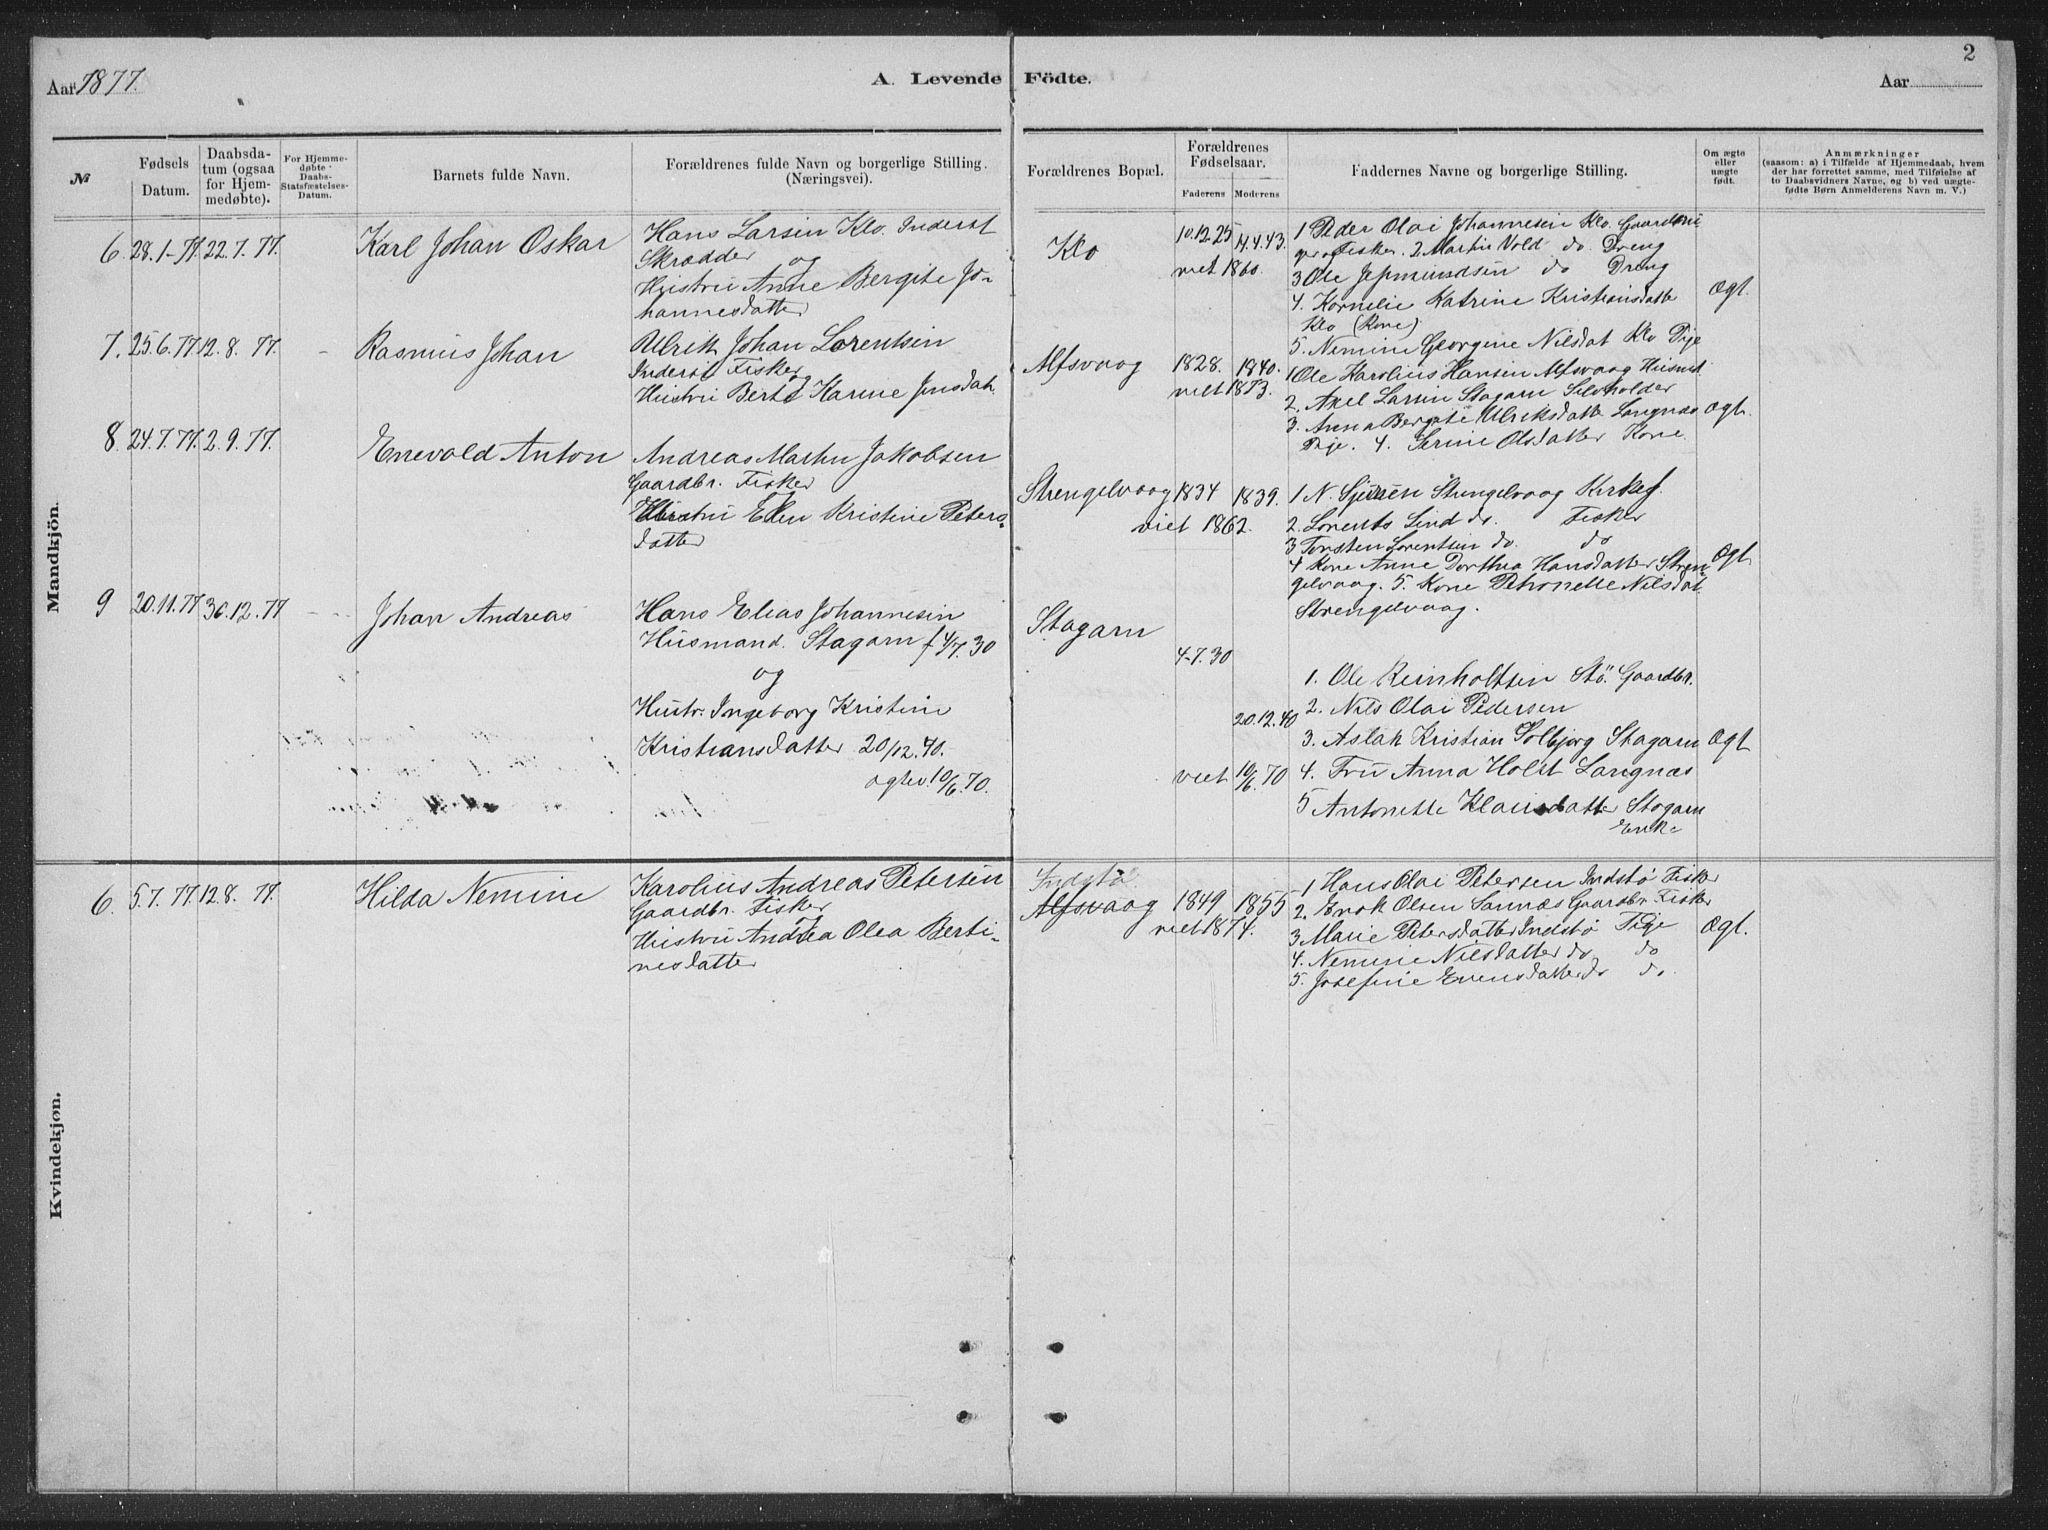 2
Aar 1877.
A. Levende Födte.
Aar
№
Fødsels Datum.
Daabsdatum (ogsaa for Hjemmedøbte).
For Hjemmedøbte Daabs-Statsfæstelses-Datum.
Barnets fulde Navn.
Forældrenes fulde Navn og borgerlige Stilling. (Næringsvei).
Forældrenes Bopæl.
Forældrenes Fødselsaar.
Faderens Moderens
Faddernes Navne og borgerlige Stilling.
Om ægte eller uægte født.
Anmærkninger
(saasom: a) i Tilfælde af Hjemmedaab, hvem der har forrettet samme, med Tilføielse af to Daabsvidners Navne, og b) ved uægtefødte Børn Anmelderens Navn m. V.)
Mandkjön.
6. 28.1-77. 22.7.77. Karl Johan Oskar
Hans Larsen Klo. Inderst
Skrædder og
Hustru Anne Bergite Jo-
hannesdatter
Klo
10.12.25 14.4.43.
viet 1860.
1 Peder Olai Johannesen Klo
Fisker. 2. Martin Vold do. Dreng
3 Ole do Dreng
4. Kornelie Katrine Kristiansdatte
Klo (Kone)
5. Nemine Georgine Nilsdat Klo Pige
Ogt.
7. 25.6.77. 12.8.77. - Rasmus Johan
Ulrik Johan Lorentsen
Inderst Fisker og
Hustru Karine Jensdat.
Alfsvaag
1828. 1840.
viet 1873.
1 Ole Karolius Hansen Alfsvaag Husmd.
2. Axel Larsen Stagarn Selvholder
3. Anna Bergite Ulriksdatte Langnæs
Pige. 4. Serine Olsdatter Kone.
Ogt.
8. 24.7.77. 2.9.77. Enevold Anton
Andreas Martin Jakobsen
Gaardbr. Fisker
og
Hustru Elen Kristine Peters-
datter
Strengelvaag
1834 1839.
viet 1862.
1 N. Strengelvaag Kirkes.
2. Lorents Lind do. Fisker
3 Torsten Lorentsen do. do
4 Kone Anne Dorthea Hansdatter Stren-
gelvaag. 5. Kone Petronelle Nilsdat
Strengelvaag.
Ogt
9 20.11.77 30.12.77 - - Johan Andreas
Hans Elias Johannesen
Husmand. Stagarn f 4/7.30
og
Hustr. Ingeborg Kristine
Kristiansdatter 20/12.40.
10/6.70.
Stagarn
4-7.30
20.12.40
viet 10/6.70
1. Ole Reinholtsen Stö. Gaardbr.
2. Nils Olai Pedersen
3. Aslak Kristian Solbjorg Stagarn
4. Fru Anna Holst Langnæs
5 Antonette Klausdatter Stagarn
Enke
Ogt
Kvindekjøn.
6. 5.7.77. 12.8.77. Hilda Nemine
Karolius Andreas Petersen
Gaardbr. Fisker
og
Hustru Andrea Olea Berti-
nesdatter
Indstö
Alfsvaag
1849 1855
viet 1874.
1 Hans Olai Petersen Indstö Fisker
2. Enok Olsen Sannæs Gaardbr Fisker
3. Marie Petersdatter Indstö Pige
4. Nemine Nilsdatter do do
5. Josefine Evensdatter do do.
Ogt.